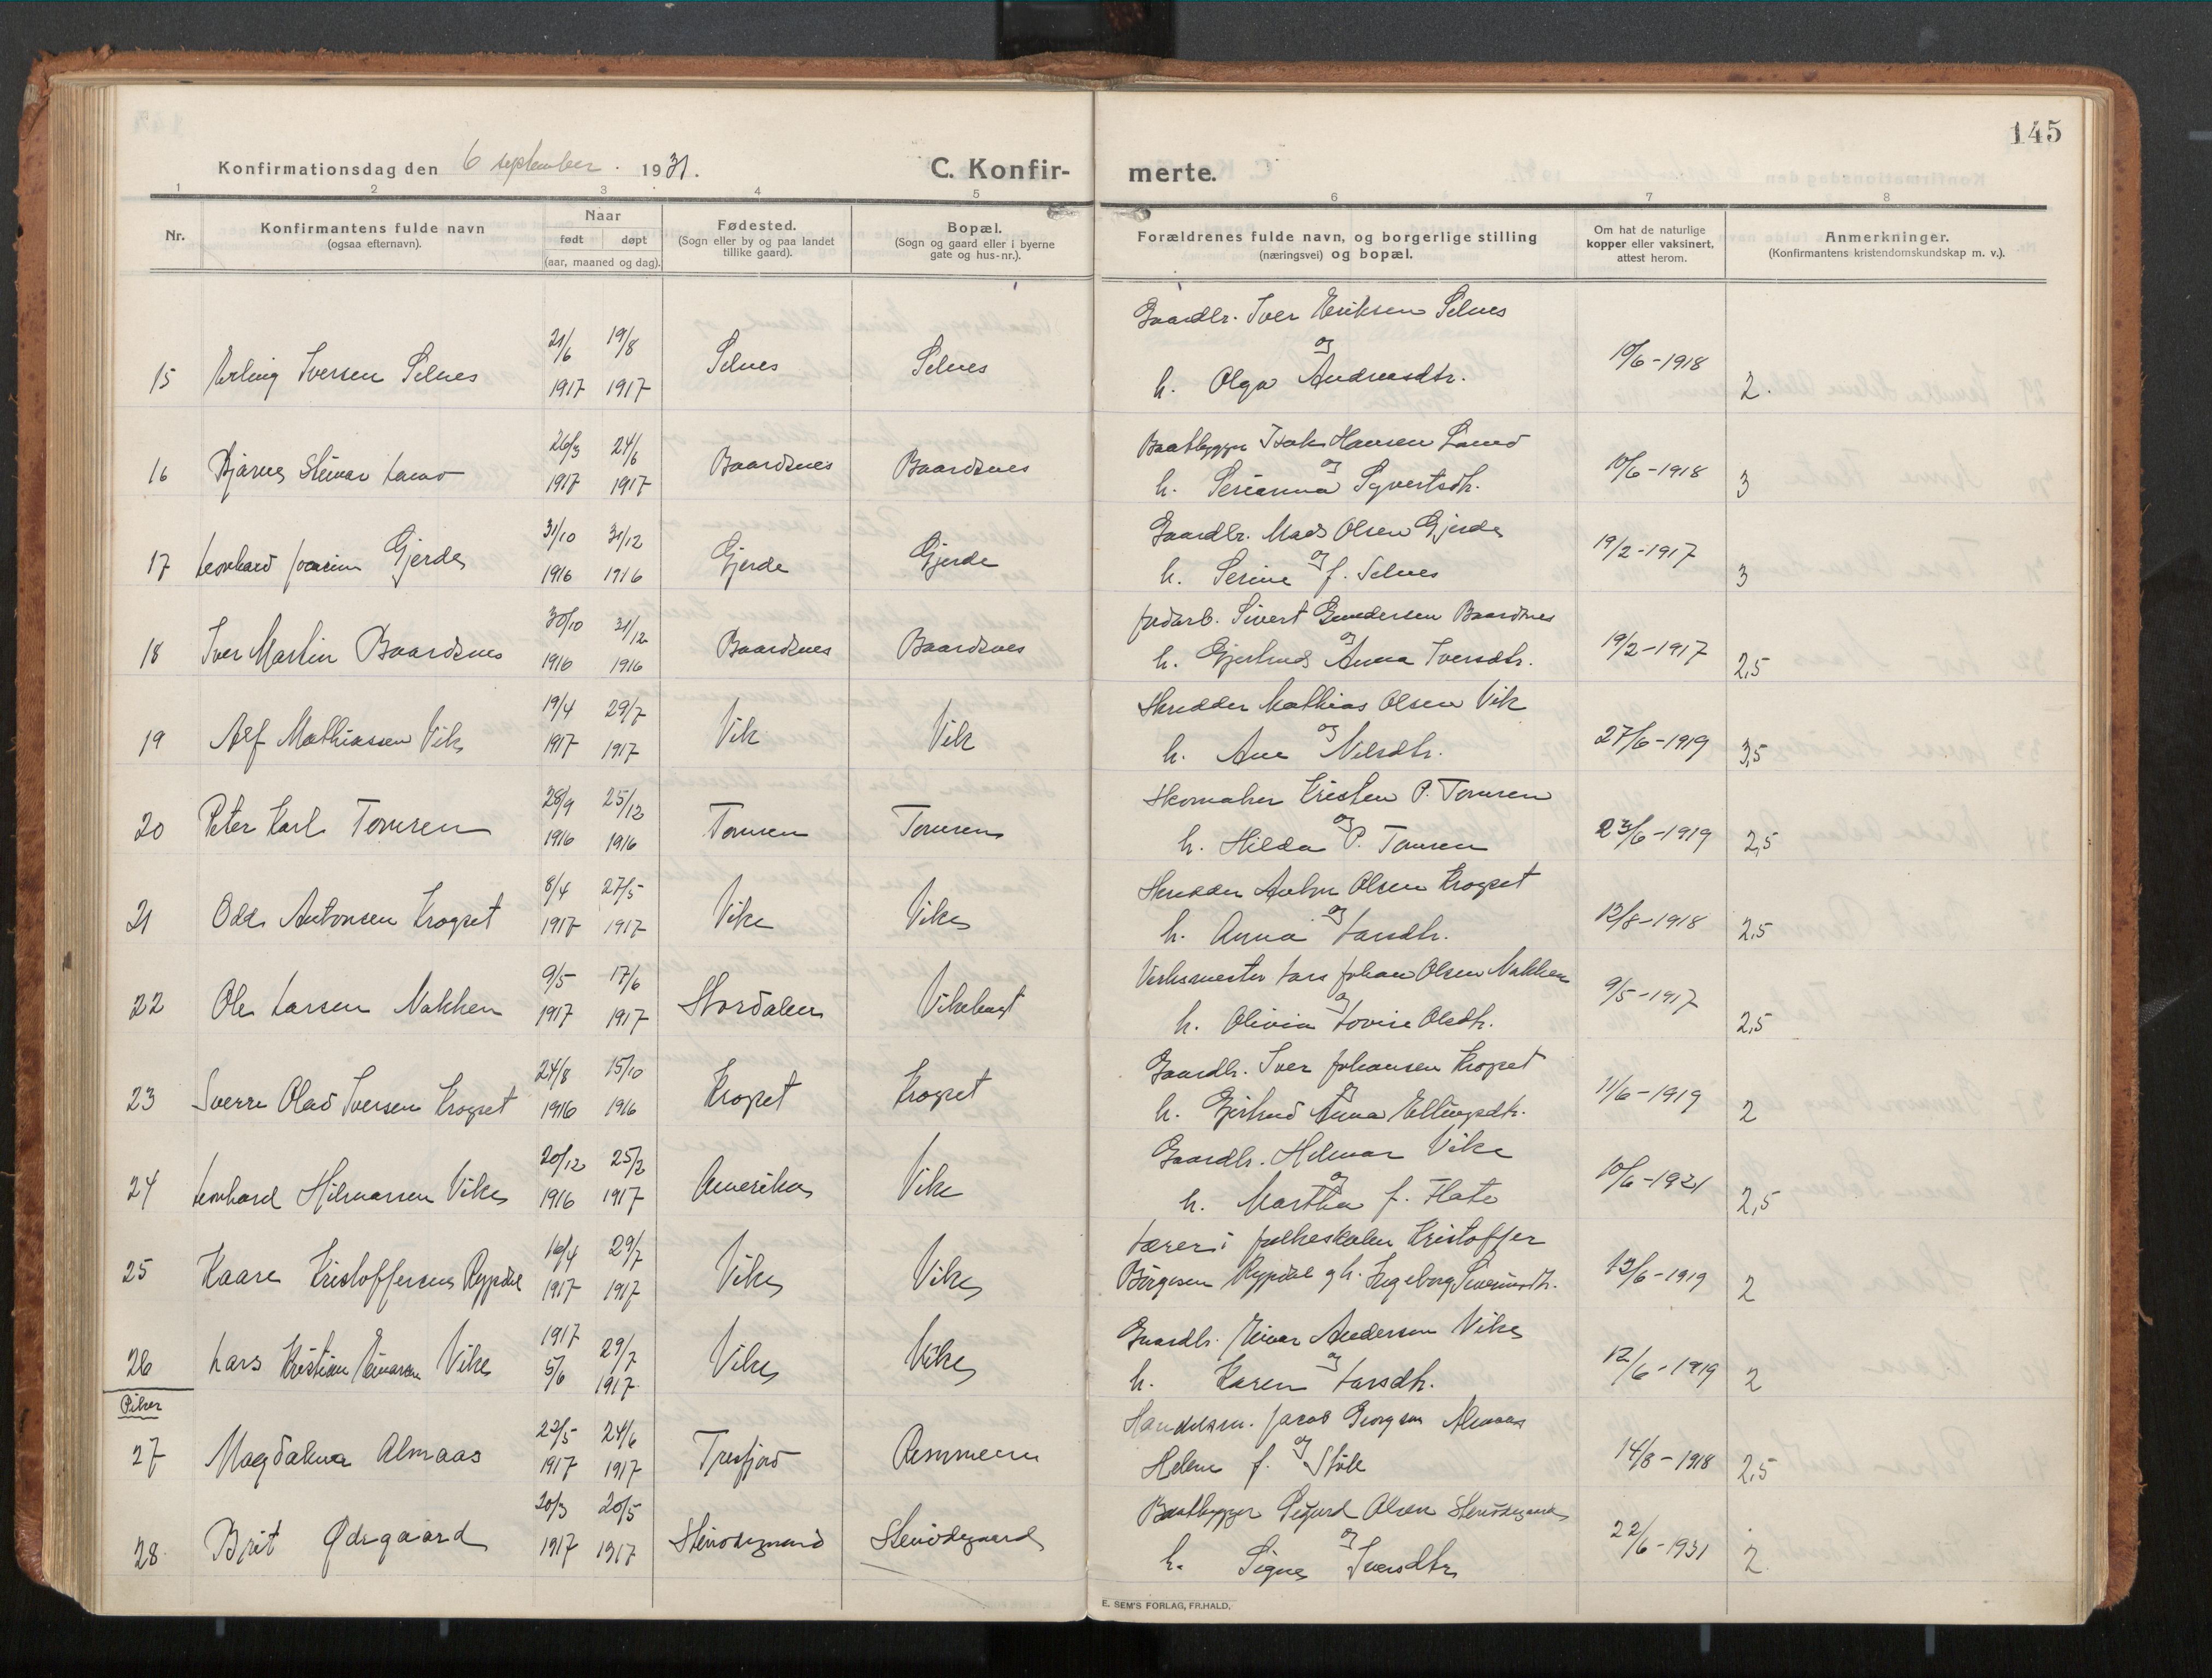 145
Konfirmationsdag den 6 september. 1931.
C. Konfir-merte.
1 2 3 4 5 6 7 8
Nr.
Konfirmantens fulde navn
(ogsaa efternavn).
Naar
født døpt
(aar, maaned og dag).
Fødested.
(Sogn eller by og paa landet
tillike gaard).
Bopæl.
(Sogn og gaard eller i byerne
gate og hus-nr.).
Forældrenes fulde navn, og borgerlige stilling
(næringsvei) og bopæl.
Om hat de naturlige
kopper eller vaksinert,
attest herom.
Anmerkninger.
(Konfirmantens kristendomskundskap m. v.).
Gaardbr. Iver Eriksen Selnes
21/6 19/8
og
15 Erling Iversen Selnes 1917 1917 Selnes Selnes h. Olga Andreasdtr. 10/6-1918 2.
26/3 24/6 Baatbygger Isak Hansen Land
og
16 Bjarne Steinar Land 1917 1917 Baardsnes Baardsnes h. Serianna Syvertsdtr. 10/6-1918 3
31/10 31/12 Gaardbr. Mads Olsen Gjerde
og
17 Leonhard Joacim Gjerde 1916 1916 Gjerde Gjerde h. Serine f. Selnes 19/2-1917 3
30/10 31/12 Jordarb. Sivert Gundersen Baardsnes
og
18 Iver Martin Baardsnes 1916 1916 Baardsnes Baardsnes h. Gjertrud Anna Iversdtr. 19/2-1917 2,5
19/4 29/7 Skredder Mathias Olsen Vik
og
19 Alf Mathiassen Vik 1917 1917 Vik Vik h. Ane Nilsdtr. 27/6-1919 3,5
28/9 25/12 Skomaker Kristen P. Tomren
og
20 Peter Karl Tomren 1916 1916 Tomren Tomren h. Hilda P. Tomren 23/6-1919 2,5
8/4 27/5 Skredder Anton Olsen Krogset
og
21 Odd Antonsen Krogset 1917 1917 Vike Vike h. Anna Larsdtr. 12/8-1918 2,5
9/5 17/6 Verksmester Lars Johan Olsen Nakken
og
22 Ole Larsen Nakken 1917 1917 Stordalen Vikebugt h. Olivia Lovise Olsdtr. 9/5-1917 2,5
24/8 15/10 Gaardbr. Iver Johansen Krogset
og
23 Sverre Olav Iversen Krogset 1916 1916 Krogset Krogset h. Gjertrud Anna Ellingsdtr. 11/6-1919 2
20/12 25/2 Gaardbr. Hilmar Vike
og
24 Leonhard Hilmarsen Vike 1916 1917 Amerika Vike h. Martha f. Flate 10/6-1921 2,5
16/4 29/7 Lærer i folkeskolen Kristoffer
25 Kaare Kristoffersen Rypdal 1917 1917 Vike Vike Børgesen Rypdal og h. Ingeborg Severinsdtr. 12/6-1919 2
1917 29/7 Gaardbr. Einar Andersen Vike
og
26 Lars Kristian Einarsen Vike 5/6 1917 Vike Vike h. Karen Larsdtr. 12/6-1919 2
Piker
23/5 24/6 Handelsm. Jacob Georgsen Almaas
og
27 Magdalena Almaas 1917 1917 Tresfjord Remmem Helene f. Støle 14/8-1918 2,5
20/3 20/5 Baatbygger Sigurd Olsen Stenødegaard
og
28. Brit Ødegaard 1917 1917 Stenødegaard Stenødegaard h. Signe Iversdtr. 22/6-1931 2.
E. SEM'S FORLAG, FR.HALD.